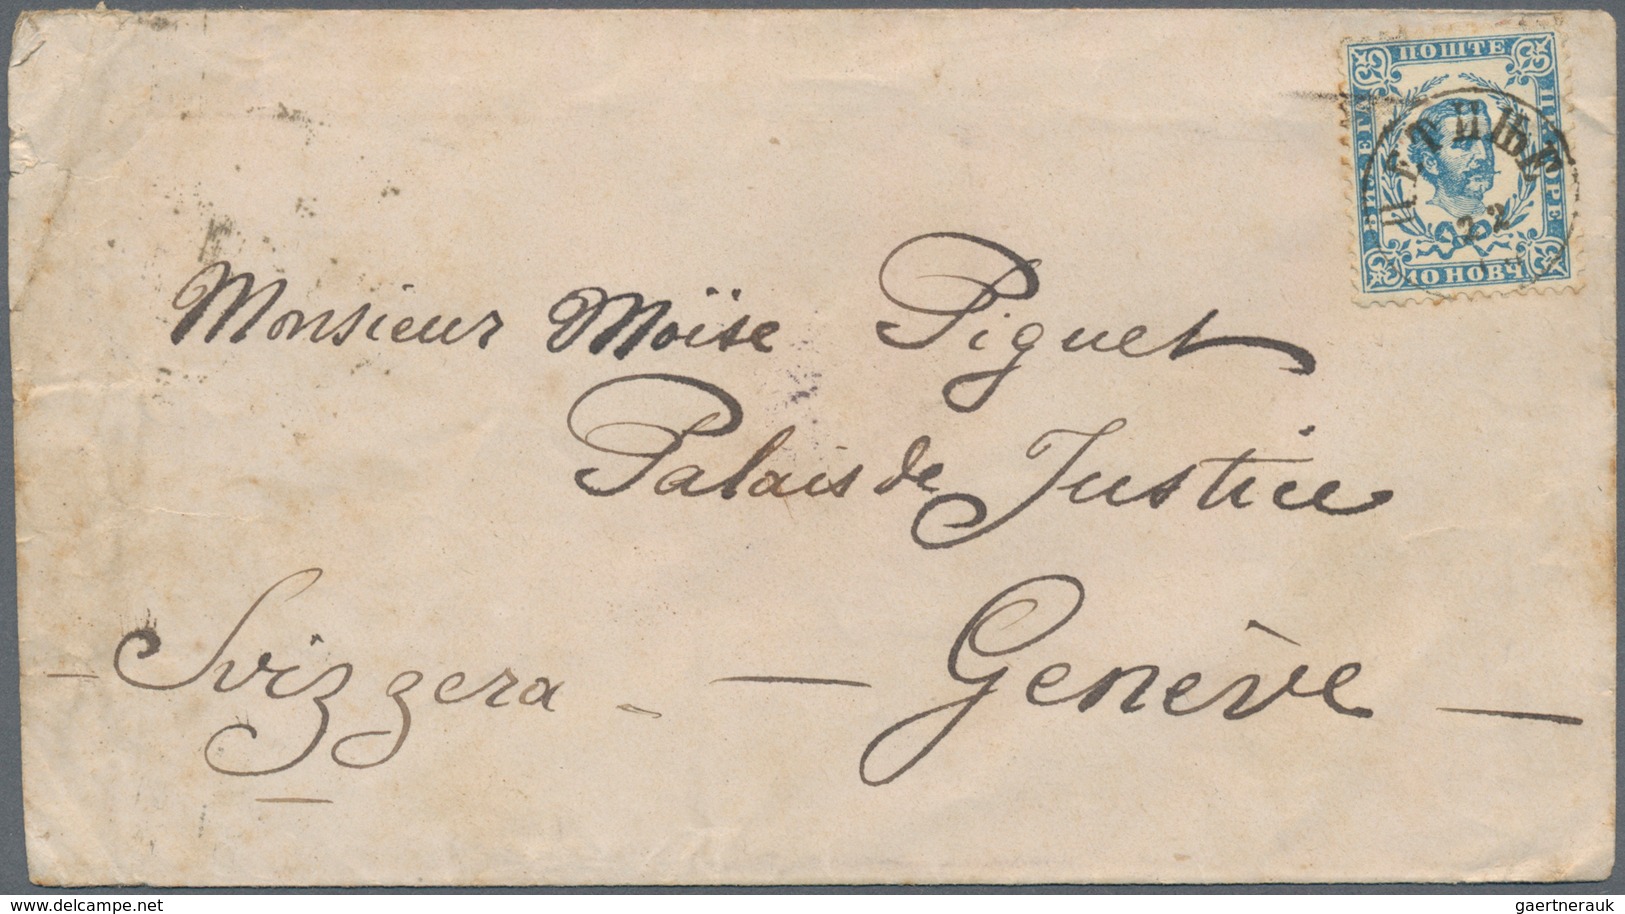 ПОШТЕ
ЦРЕ
10 НОВЧ
ЦЕТИЊЕ
22
Monsieur Moïse Piguet
Palais de Justice
Svizzera - — Genève —
delcampe.net
gaertnerauk